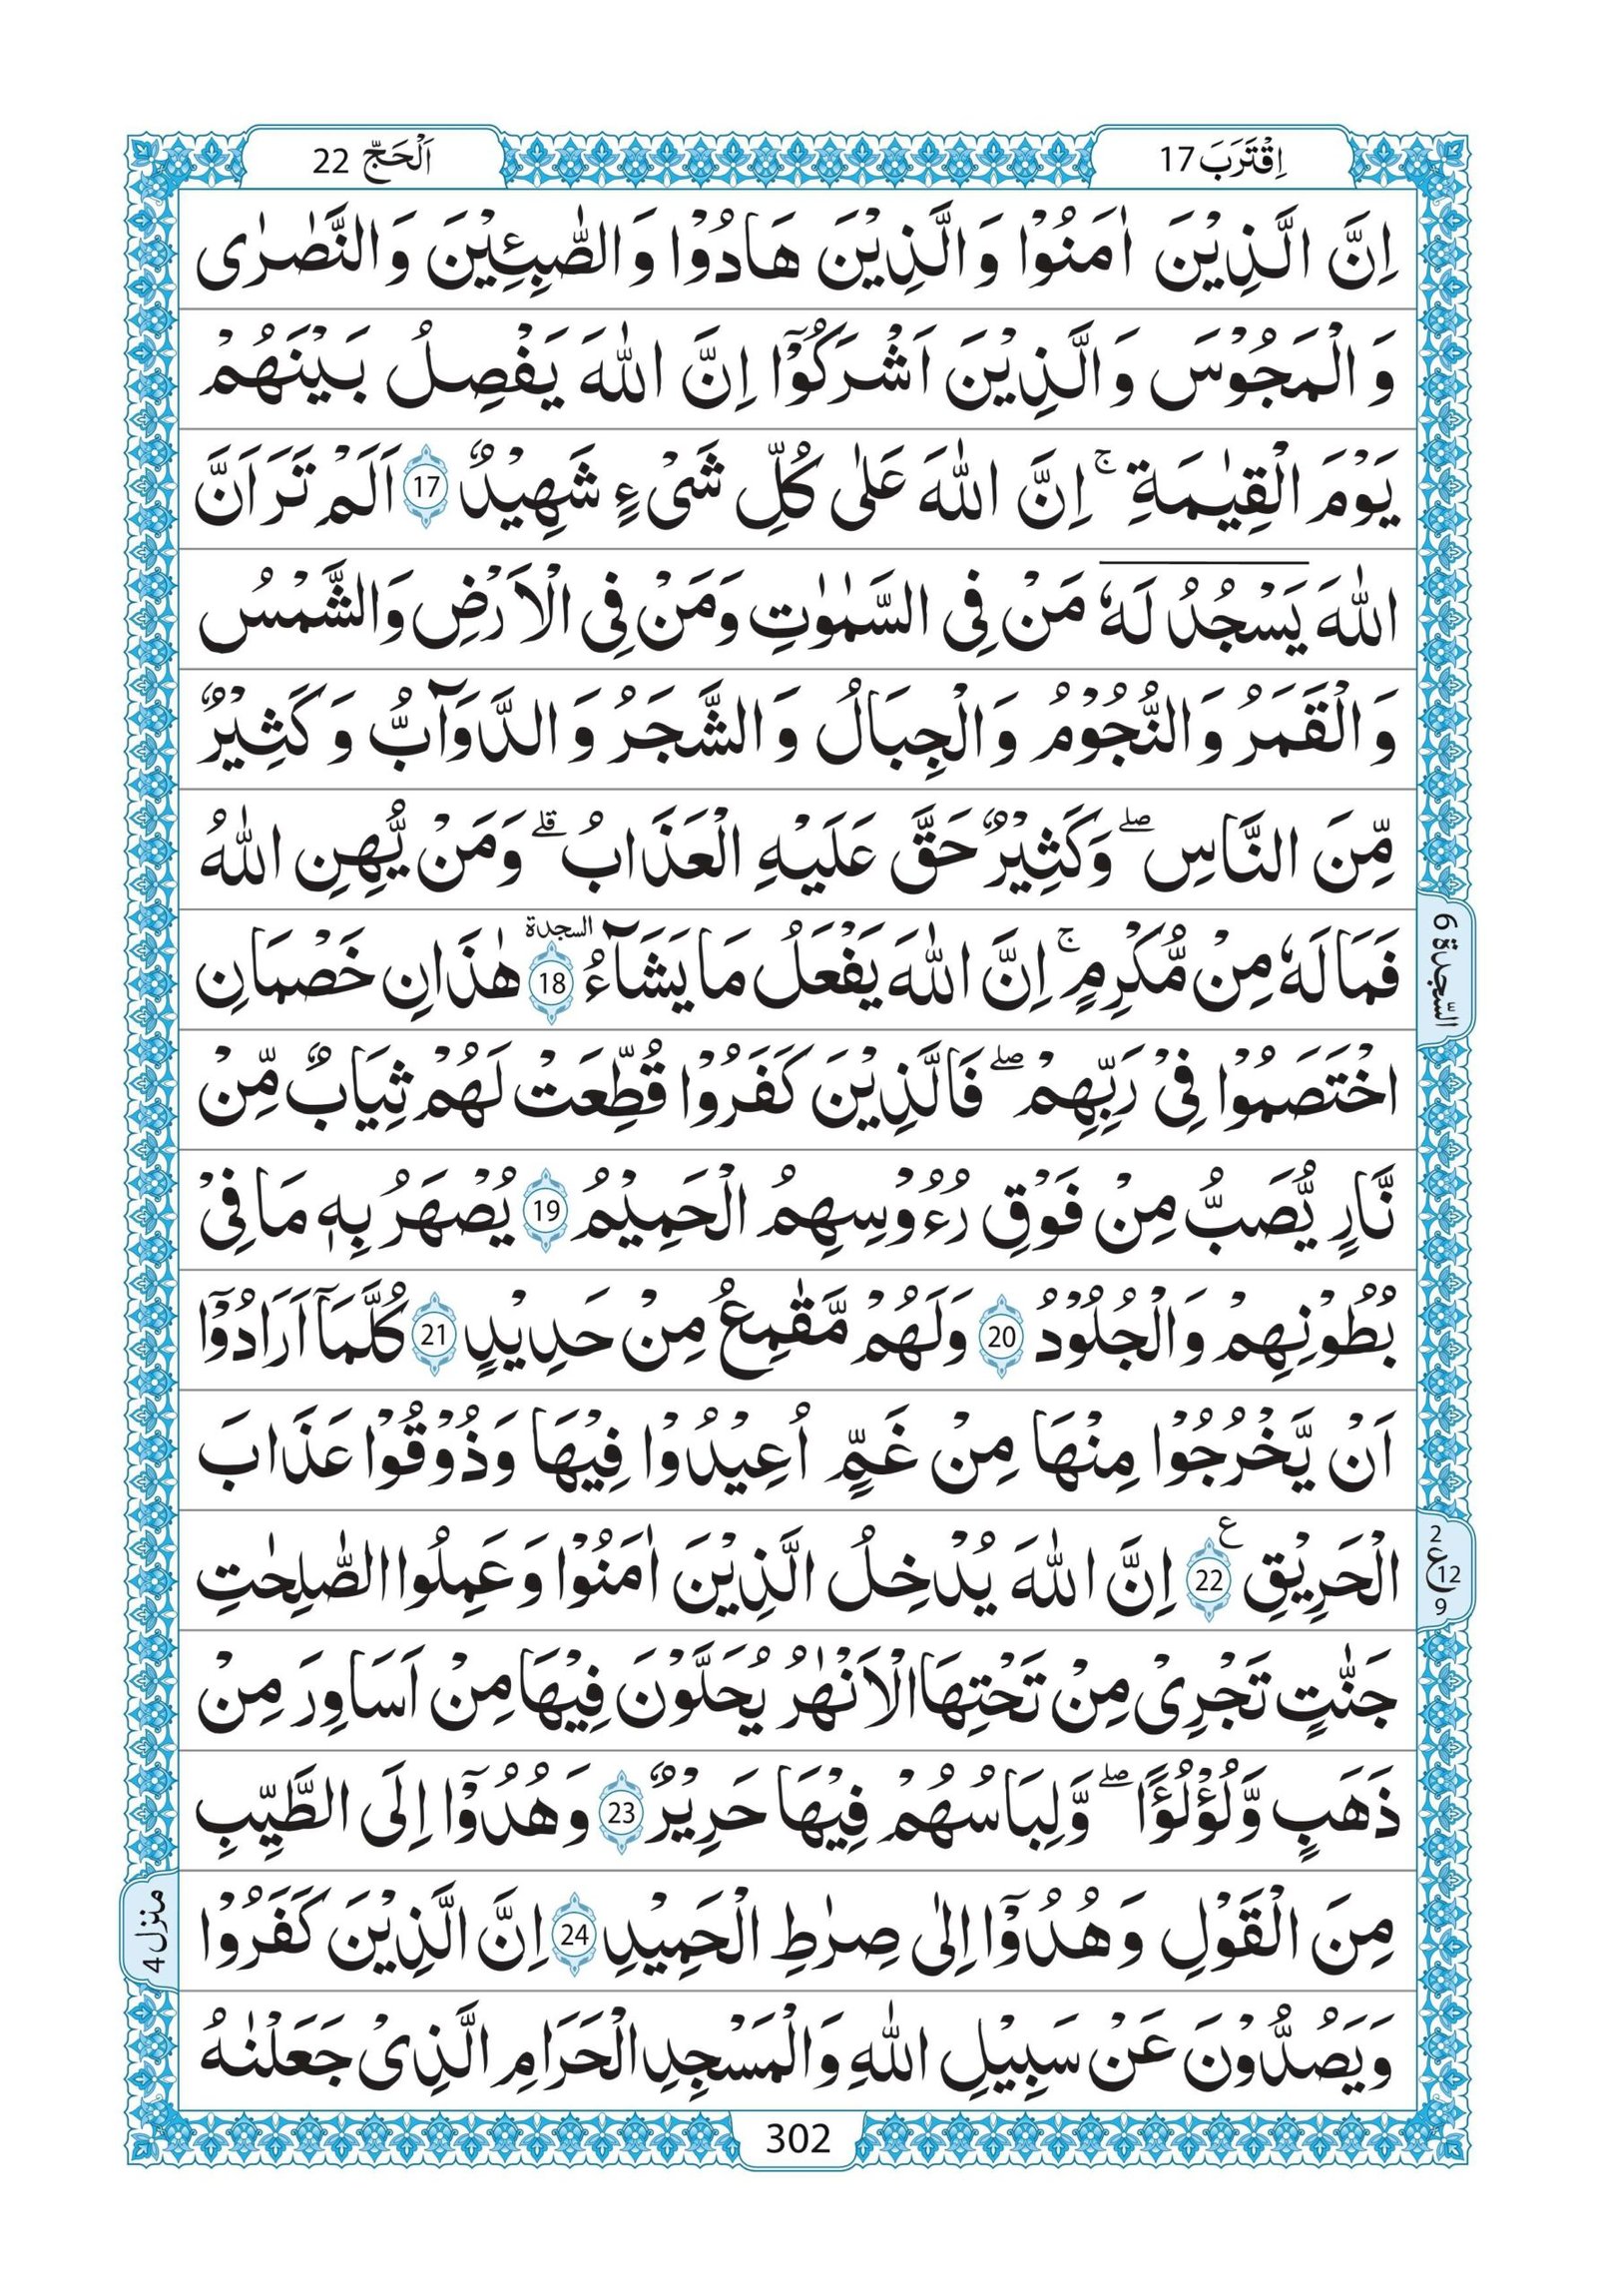 اِقْتَرَبَ 17
اَلْحَجّ 22
اِنَّ الَّذِيْنَ اٰمَنُوْا وَالَّذِيْنَ هَادُوْا وَالصّٰبِـِٕيْنَ وَالنَّصٰرٰى
وَالْمَجُوْسَ وَالَّذِيْنَ اَشْرَكُوْۤا اِنَّ اللّٰهَ يَفْصِلُ بَيْنَهُمْ
يَوْمَ الْقِيٰمَةِ ۚ اِنَّ اللّٰهَ عَلٰى كُلِّ شَىْءٍ شَهِيْدٌ 17 اَلَمْ تَرَ اَنَّ
اللّٰهَ يَسْجُدُ لَهٗ مَنْ فِى السَّمٰوٰتِ وَمَنْ فِى الْاَرْضِ وَالشَّمْسُ
وَالْقَمَرُ وَالنُّجُوْمُ وَالْجِبَالُ وَالشَّجَرُ وَالدَّوَآبُّ وَكَثِيْرٌ
مِّنَ النَّاسِ ۖ وَكَثِيْرٌ حَقَّ عَلَيْهِ الْعَذَابُ ۗ وَمَنْ يُّهِنِ اللّٰهُ
فَمَا لَهٗ مِنْ مُّكْرِمٍ ۚ اِنَّ اللّٰهَ يَفْعَلُ مَا يَشَآءُ السجدة 18 هٰذَانِ خَصْمَانِ
السّجدة 6
اخْتَصَمُوْا فِىْ رَبِّهِمْ ۖ فَالَّذِيْنَ كَفَرُوْا قُطِّعَتْ لَهُمْ ثِيَابٌ مِّنْ
نَّارٍ يُّصَبُّ مِنْ فَوْقِ رُءُوْسِهِمُ الْحَمِيْمُ 19 يُصْهَرُ بِهٖ مَا فِىْ
بُطُوْنِهِمْ وَالْجُلُوْدُ 20 وَلَهُمْ مَّقٰمِعُ مِنْ حَدِيْدٍ 21 كُلَّمَاۤ اَرَادُوْۤا
اَنْ يَّخْرُجُوْا مِنْهَا مِنْ غَمٍّ اُعِيْدُوْا فِيْهَا وَذُوْقُوْا عَذَابَ
الْحَرِيْقِ 22 ع اِنَّ اللّٰهَ يُدْخِلُ الَّذِيْنَ اٰمَنُوْا وَعَمِلُوا الصّٰلِحٰتِ
2 ع 12 9
جَنّٰتٍ تَجْرِىْ مِنْ تَحْتِهَا الْاَنْهٰرُ يُحَلَّوْنَ فِيْهَا مِنْ اَسَاوِرَ مِنْ
ذَهَبٍ وَّلُؤْلُؤًا ۖ وَّلِبَاسُهُمْ فِيْهَا حَرِيْرٌ 23 وَهُدُوْۤا اِلَى الطَّيِّبِ
مِنَ الْقَوْلِ وَهُدُوْۤا اِلٰى صِرٰطِ الْحَمِيْدِ 24 اِنَّ الَّذِيْنَ كَفَرُوْا
منزل 4
وَيَصُدُّوْنَ عَنْ سَبِيْلِ اللّٰهِ وَالْمَسْجِدِ الْحَرَامِ الَّذِىْ جَعَلْنٰهُ
302